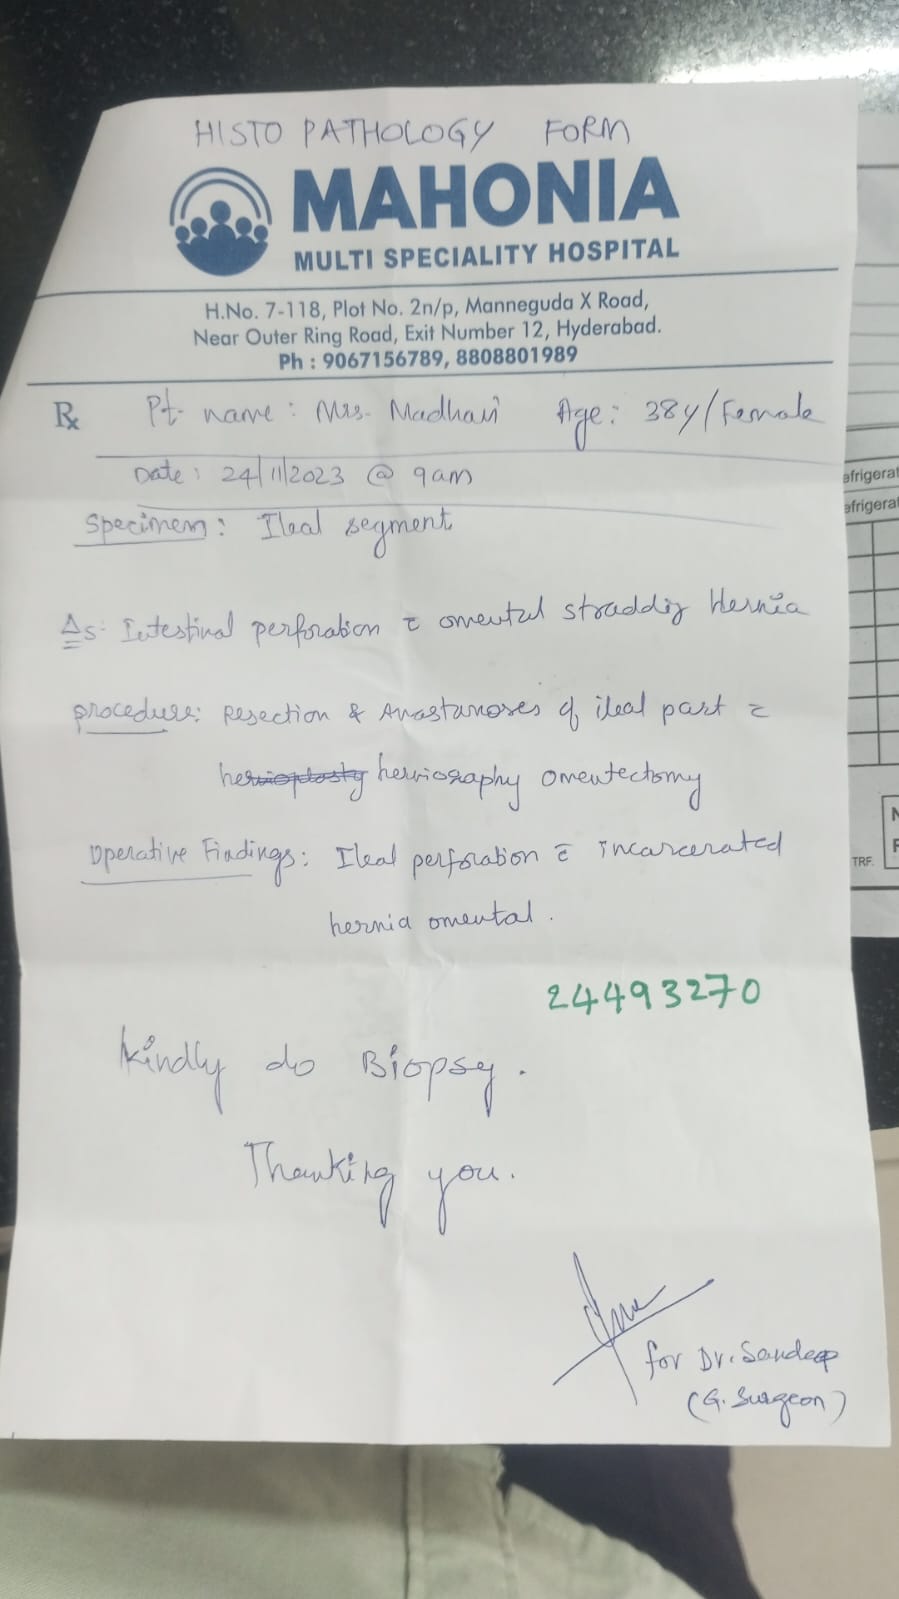 HISTO PATHOLOGY FORM
MAHONIA
MULTI SPECIALITY HOSPITAL
H.No. 7-118, Plot No. 2n/p, Manneguda X Road,
Near Outer Ring Road, Exit Number 12, Hyderabad.
Ph : 9067156789, 8808801989
Rx Pt. name : Mrs. Madhavi Age : 38y/Female
Date : 24/11/2023 @ 9am
Specimen : Ileal segment
Δs : Intestinal perforation c̄ omental straddig Hernia
procedure : Resection & Anastamoses of ileal part c̄
herniography omentectomy
Operative Findings : Ileal perforation c̄ incarcerated
hernia omental .
24493270
Kindly do Biopsy .
Thanking you .
for Dr. Sandeep
(G. Surgeon)
efrigerat
efrigerat
TRF.